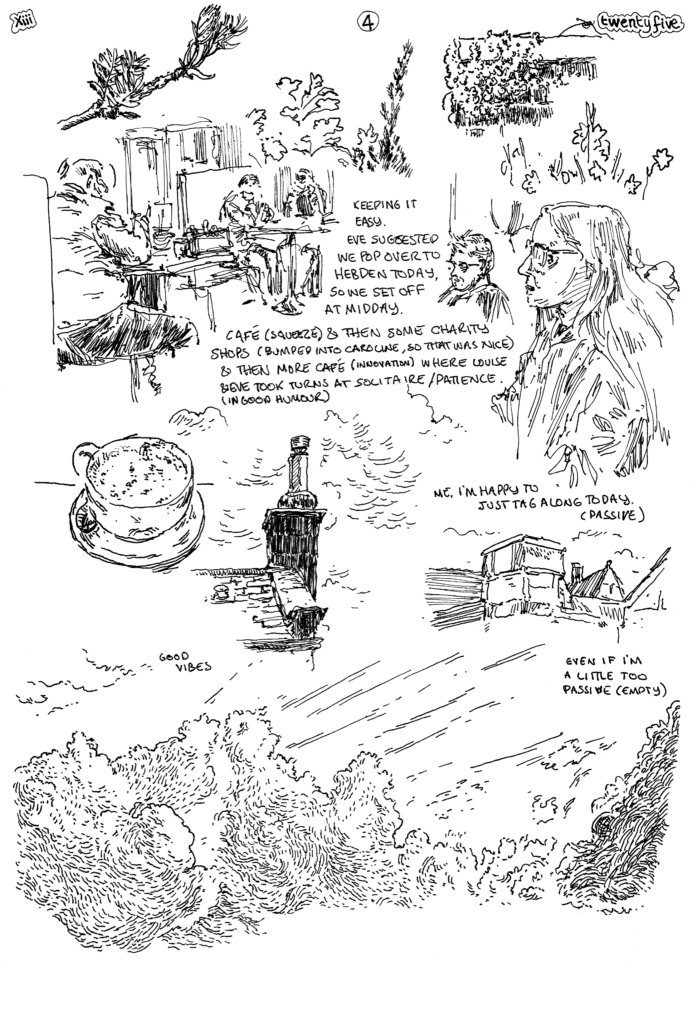 xiii
4
twentyfive
KEEPING IT
EASY.
EVE SUGGESTED
WE POP OVER TO
HEBDEN TODAY,
SO WE SET OFF
AT MIDDAY.
CAFÉ (SQUEEZE) & THEN SOME CHARITY
SHOPS (BUMPED INTO CAROLINE, SO THAT WAS NICE)
& THEN MORE CAFÉ (INNOVATION) WHERE LOUISE
& EVE TOOK TURNS AT SOLITAIRE/PATIENCE.
(IN GOOD HUMOUR)
ME, I'M HAPPY TO
JUST TAG ALONG TODAY.
(PASSIVE)
GOOD
VIBES
EVEN IF I'M
A LITTLE TOO
PASSIVE (EMPTY)